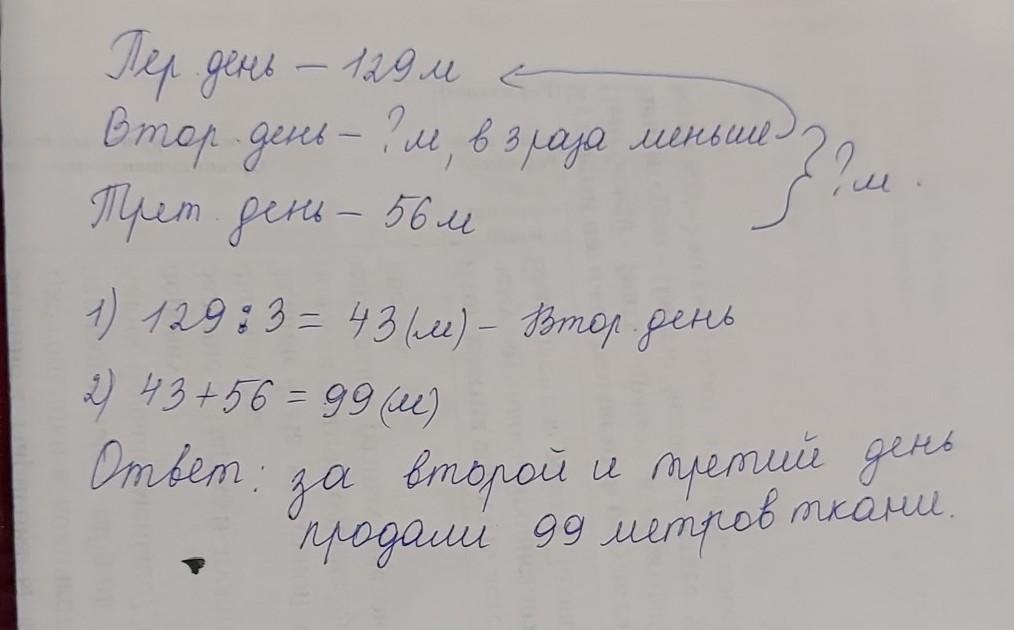 Пер. день – 129 м
Втор. день – ? м, в 3 раза меньше
? м.
Трет. день – 56 м
1) 129 : 3 = 43 (м) – Втор. день
2) 43 + 56 = 99 (м)
Ответ: за второй и третий день
продали 99 метров ткани.